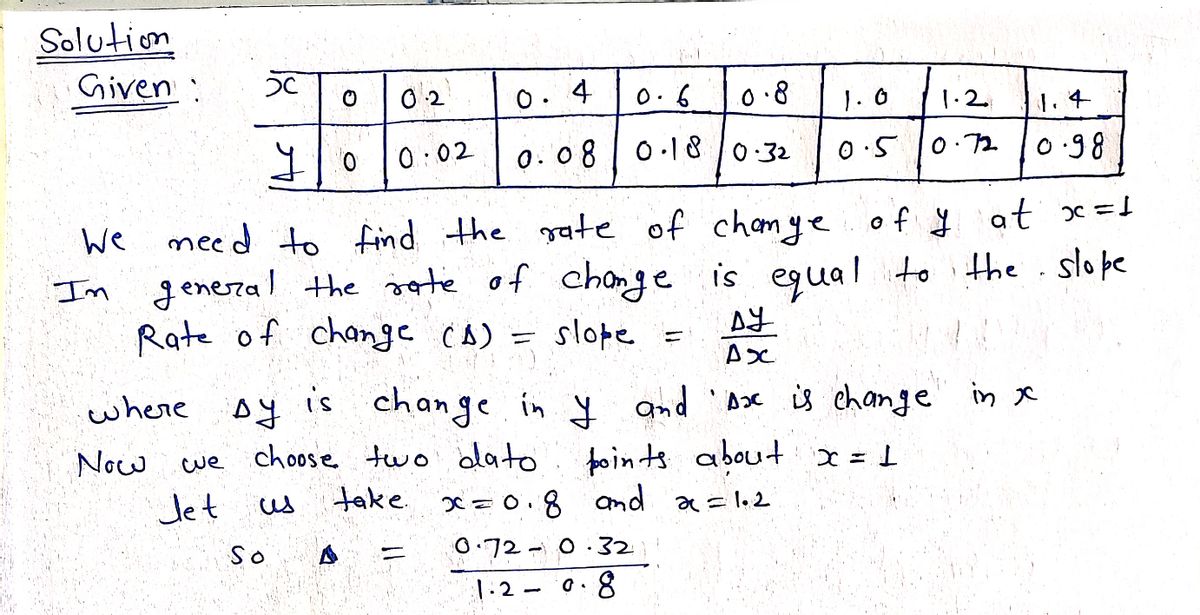 Solution
Given : x 0 0.2 0.4 0.6 0.8 1.0 1.2 1.4
y 0 0.02 0.08 0.18 0.32 0.5 0.72 0.98
We need to find the rate of change of y at x=1
In general the rate of change is equal to the slope
Rate of change (Δ) = slope = Δy/Δx
where Δy is change in y and Δx is change in x
Now we choose two data points about x = 1
Let us take x=0.8 and x=1.2
So Δ = 0.72 - 0.32 / 1.2 - 0.8